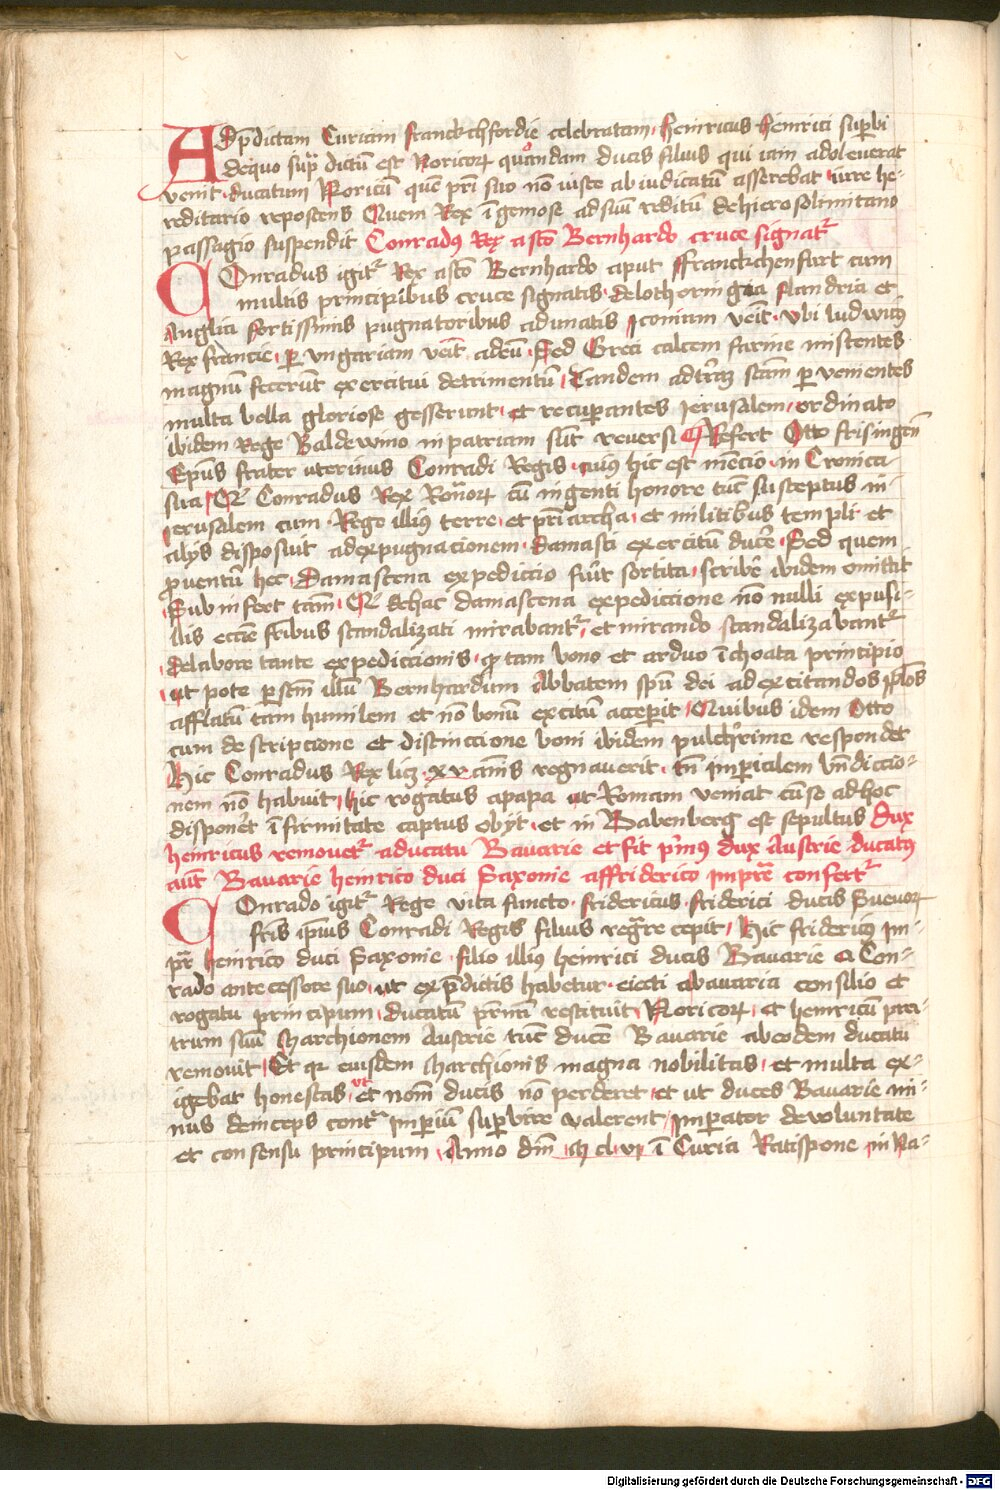 AD p̄dictam Curiam franckchfordie celebratam, heinricus heinrici supbi
de quo sup̄ dictū est Noricoꝝ quondam ducis filius qui iam adoleuerat
venit ducatum Noricū quē pr̄i suo nō iuste abiudicatū asserebat iure he-
reditario repostens Quem Rex īgemose ad suū reditū de hierosolimitano
passagio suspendit Conradus Rex a sctō Bernhardo cruce signatr̄
COnradus igitr̄ Rex a sctō Bernhardo aput ffranckchenfurt cum
multis principibus cruce signatis de lothoringia flandria et
Anglia fortissimis pugnatoribus adunatis Iconium veīt vbi ludwicꝰ
Rex francie, p vngariam veīt ad eū Sed Greci calcem farine miscentes
magnū fecerūt exercitui detrimentū, Tandem ad tr̄am scām p venientes
multa bella gloriose gesserunt, et recuperantes Jerusalem, ordinato
ibidem Rege Baldewino in patriam sūt reuersi Refert Otto frisingen̄
Ep̄us frater vterinus Conradi Regis cuiꝰ hic est mēcio in Cronica
sua, Qr̄ Conradus Rex Romoꝝ cū ingenti honore tūc susceptus in
Jerusalem cum Rege illiꝰ terre, et pr̄iarcha, et militibus templi et
alijs disposuit ad expugnacionem damasci exercitū ducē Sed quem
ꝓuentū hec, Damascena expediccio fūit sortita, scribē ibidem omittit
Sub infert tam̄, Qr̄ de hac damascena expediccione nō nulli ex pusi-
llis ecc̄e fribus scandalizati mirabantr̄, et mirando scandalizabantr̄
de labore tante expediccionis, qꝫ tam bono et arduo īchoata principio
ut pote p scm̄ illū Bernhardum Abbatem spū dei ad excitandos pplos
afflatū tam humilem et nō bonū exitū acceperit, Quibus idem Otto
cum descripcione et distinccione boni ibidem pulcherime respondet
Hic Conradus Rex licꝫ xv annis regnauerit, tn̄ Imperialem bn̄diccio-
nem nō habuit, hic rogatus a papa ut Romam veniat cū se ad hoc
disponēt īfirmitate captus obijt et in Babenberg est sepultus Dux
heinricus remouetr̄ a ducatu Bauarie et fit p̄mꝰ dux Austrie ducatꝰ
aūt Bauarie heinrico duci Saxonie a ffriderico Impr̄e confertr̄
COnrado igitr̄ Rege vita functo fridericus friderici ducis Sueuoꝝ
fr̄is ipīus Conradi Regis filius regn̄re cepit, Hic fridericꝰ Im-
pr̄ heinrico duci Saxonie filio illiꝰ heinrici ducis Bauarie a Con-
rado antecessore suo, ut ex p̄dictis habetur eiecti a bauaria consilio et
rogatu principum, ducatū pr̄nū restituit Noricoꝝ, et heinricū pa-
truum suū Marchionem Austrie tūc ducē Bauarie ab eodem ducatu
remouit, Et qꝛ eiusdem Marchionis magna nobilitas, et multa ex-
igebat honestas, ut et nom̄ ducis nō perderet, et ut duces Bauarie mi-
nus deinceps contr̄ Imperiū superbire valerent, Imperator de voluntate
et consensu principum, Anno dm̄ M cl vj ī Curia Ratispone in Na-
Digitalisierung gefördert durch die Deutsche Forschungsgemeinschaft - DFG